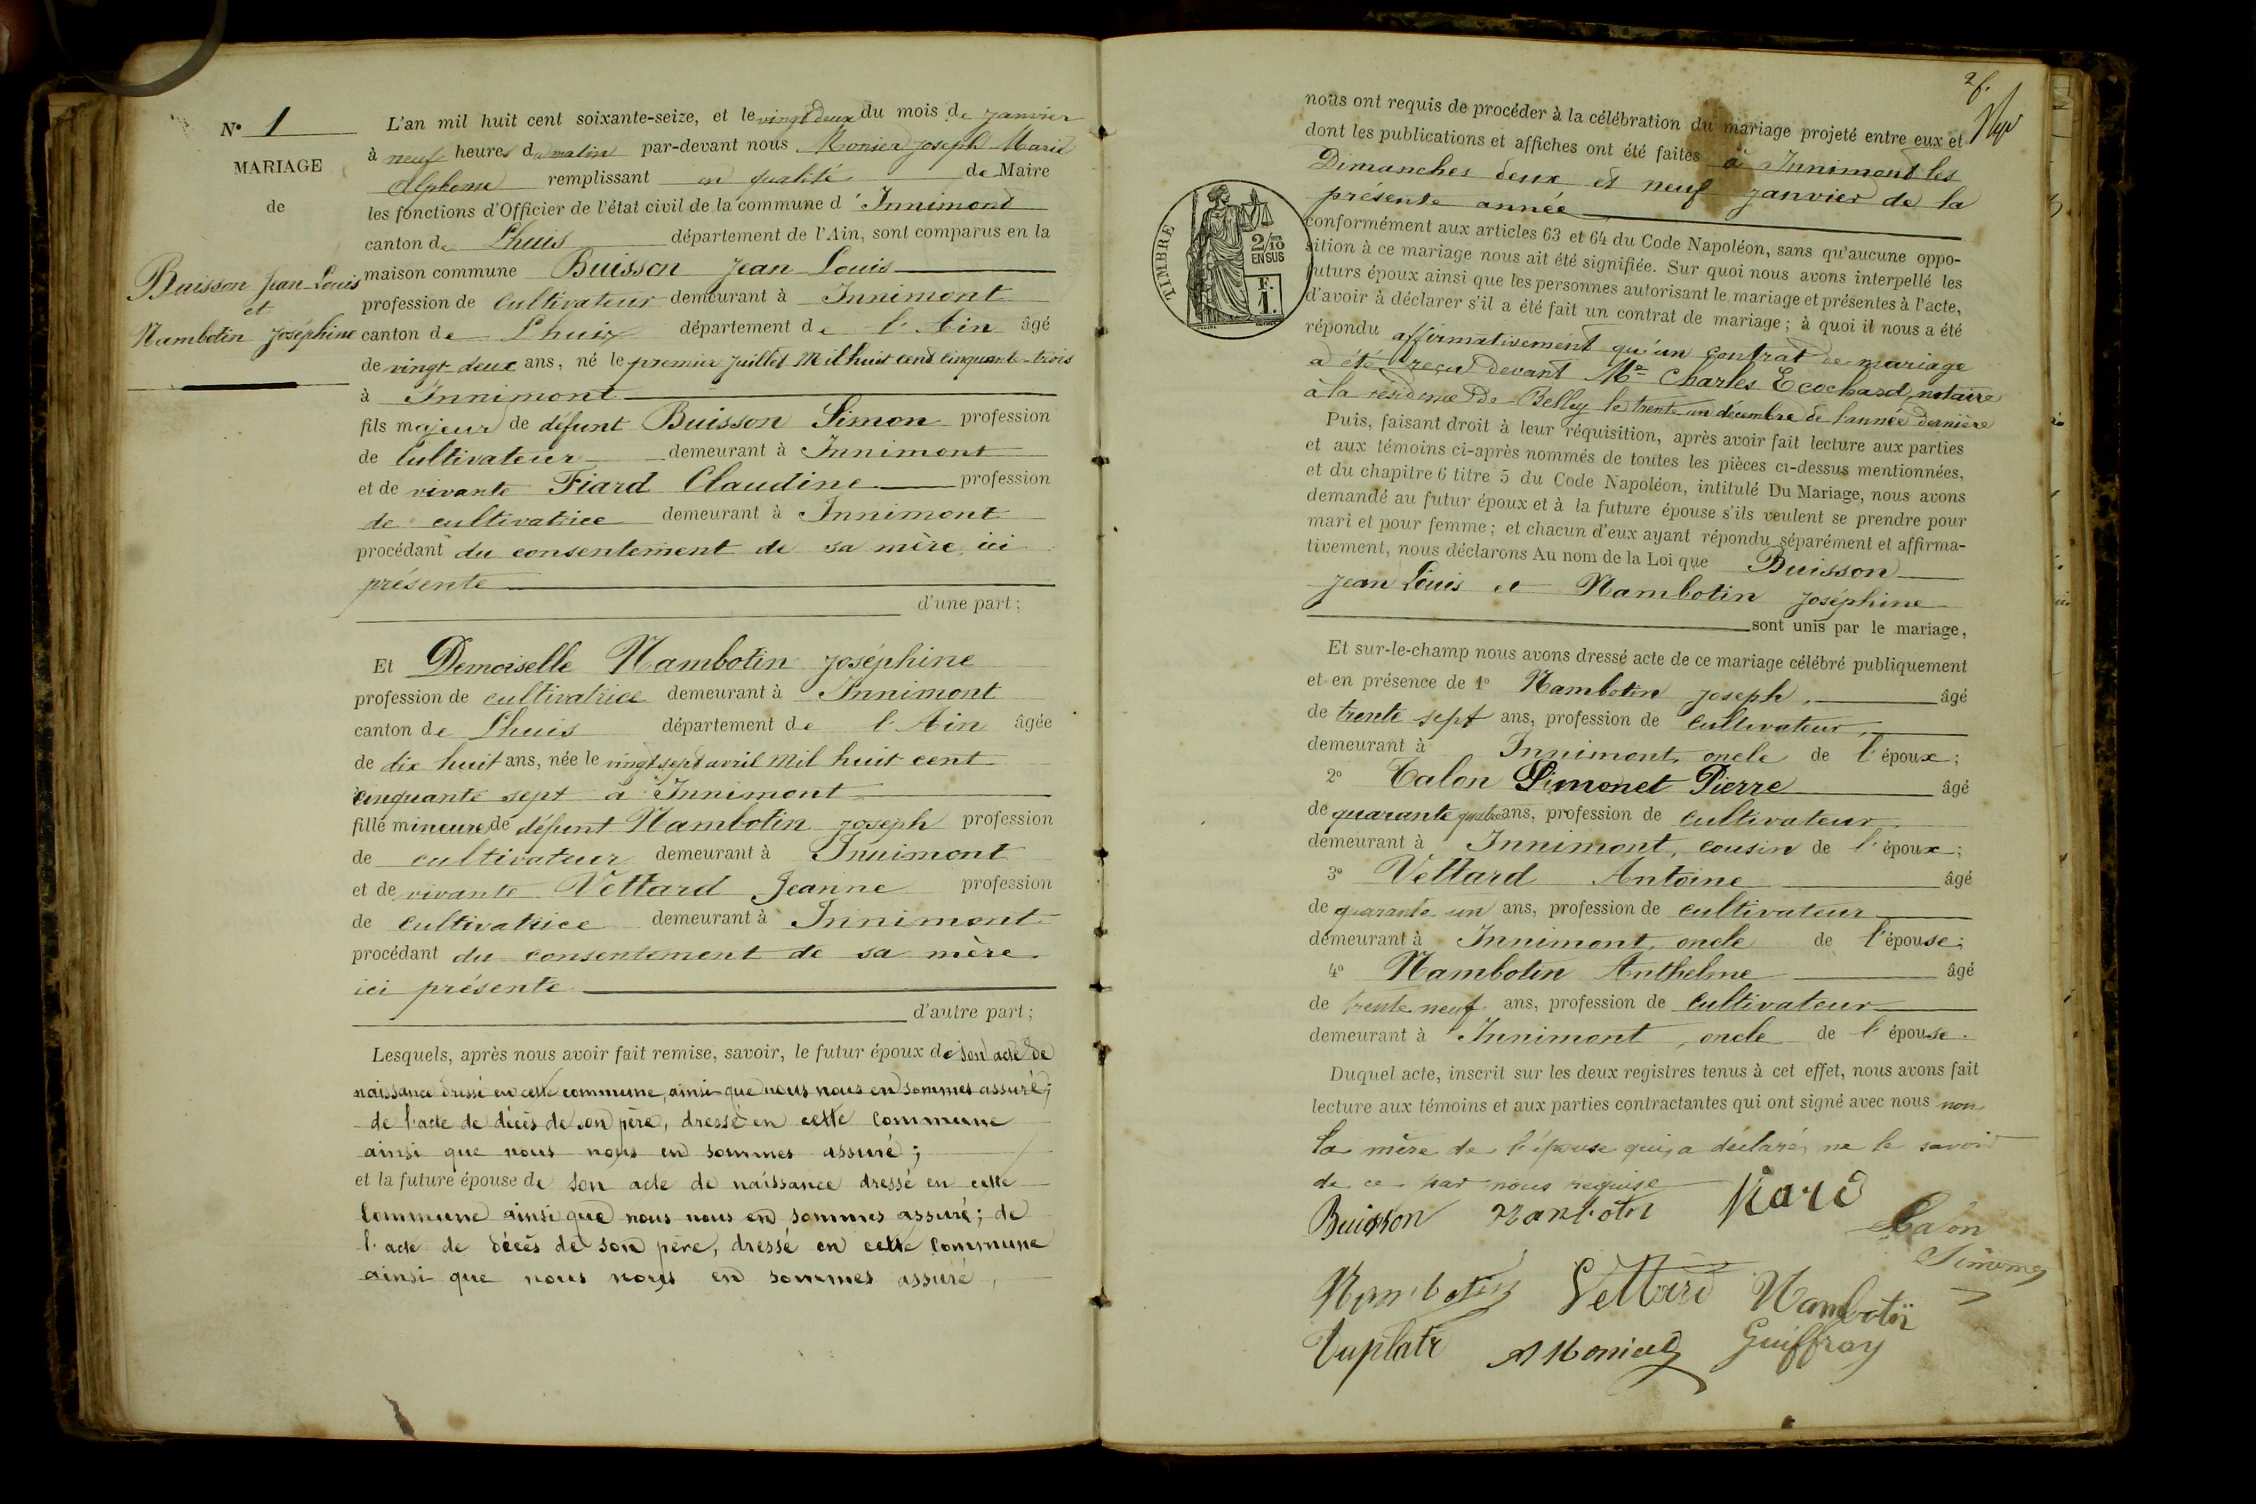 N° 1
MARIAGE
de
Buisson Jean-Louis
et
Nambotin Joséphine
L'an mil huit cent soixante-seize, et le vingt deux du mois de janvier
à neuf heures du matin par-devant nous Monier Joseph Marie
Alphonse remplissant en qualité de Maire
les fonctions d'Officier de l'état civil de la commune d'Innimond
canton de Lhuis département de l'Ain, sont comparus en la
maison commune Buisson Jean Louis
profession de Cultivateur demeurant à Innimont
canton de Lhuis département de l'Ain âgé
de vingt-deux ans, né le premier juillet Mil huit cent cinquante-trois
à Innimont
fils majeur de défunt Buisson Simon profession
de Cultivateur demeurant à Innimont
et de vivante Fiard Claudine profession
de cultivatrice demeurant à Innimont
procédant du consentement de sa mère, ici
présente
d'une part;
Et Demoiselle Nambotin Joséphine
profession de cultivatrice demeurant à Innimont
canton de Lhuis département de l'Ain âgée
de dix huit ans, née le vingt sept avril Mil huit cent
cinquante sept à Innimont
fille mineure de défunt Nambotin Joseph profession
de cultivateur demeurant à Innimont
et de vivante Vettard Jeanne profession
de cultivatrice demeurant à Innimont
procédant du consentement de sa mère
ici présente
d'autre part;
Lesquels, après nous avoir fait remise, savoir, le futur époux de son acte de
naissance dressé en cette commune, ainsi que nous nous en sommes assuré;
de l'acte de décès de son père, dressé en cette Commune
ainsi que nous nous en sommes assuré;
et la future épouse de son acte de naissance dressé en cette
Commune ainsi que nous nous en sommes assuré; de
l'acte de décès de son père, dressé en cette Commune
ainsi que nous nous en sommes assuré,
2 f.
TIMBRE
2/10
EN SUS
F.
1.
nous ont requis de procéder à la célébration du mariage projeté entre eux et
dont les publications et affiches ont été faites à Innimond les
Dimanches deux et neuf janvier de la
présente année
conformément aux articles 63 et 64 du Code Napoléon, sans qu'aucune oppo-
sition à ce mariage nous ait été signifiée. Sur quoi nous avons interpellé les
futurs époux ainsi que les personnes autorisant le mariage et présentes à l'acte,
d'avoir à déclarer s'il a été fait un contrat de mariage; à quoi il nous a été
répondu affirmativement qu'un contrat de mariage
a été reçu devant Me Charles Ecochard, notaire
à la résidence de Belley le trente-un décembre de l'année dernière
Puis, faisant droit à leur réquisition, après avoir fait lecture aux parties
et aux témoins ci-après nommés de toutes les pièces ci-dessus mentionnées,
et du chapitre 6 titre 5 du Code Napoléon, intitulé Du Mariage, nous avons
demandé au futur époux et à la future épouse s'ils veulent se prendre pour
mari et pour femme; et chacun d'eux ayant répondu séparément et affirma-
tivement, nous déclarons Au nom de la Loi que Buisson
Jean Louis et Nambotin Joséphine
sont unis par le mariage,
Et sur-le-champ nous avons dressé acte de ce mariage célébré publiquement
et en présence de 1° Nambotin Joseph, âgé
de trente sept ans, profession de cultivateur
demeurant à Innimont, oncle de l'époux;
2° Calon Simonet Pierre âgé
de quarante quatre ans, profession de cultivateur
demeurant à Innimont, cousin de l'époux;
3° Vettard Antoine âgé
de quarante un ans, profession de cultivateur
demeurant à Innimont, oncle de l'épouse;
4° Nambotin Anthelme âgé
de trente neuf ans, profession de Cultivateur
demeurant à Innimont, oncle de l'épouse.
Duquel acte, inscrit sur les deux registres tenus à cet effet, nous avons fait
lecture aux témoins et aux parties contractantes qui ont signé avec nous non
la mère de l'épouse qui a déclaré ne le savoir
de ce par nous requise
Buisson Nanbotin
Nambotin Vettard Nambotin
A Monier Guiffray